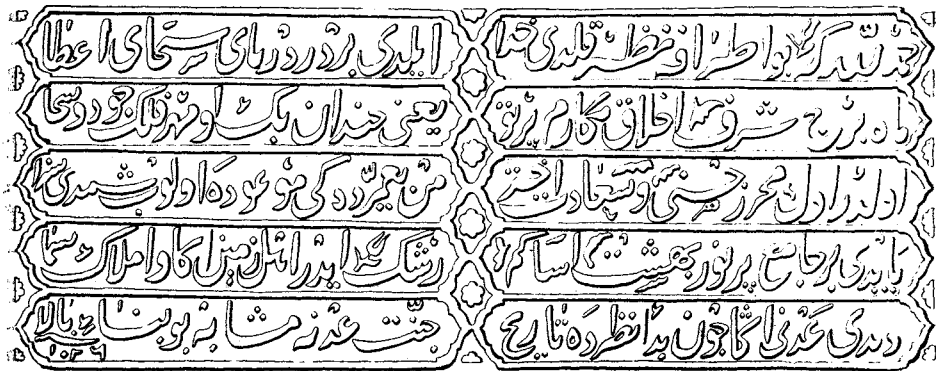 حمد لله که بو اطرافه نظر قلدی خدا
ایلدی بر در دریای سخای اعطا
ماه برج شرف اخلاق مکارم پرتو
یعنی خندان بک او مهر فلک جود و سخا
اولدر اول محرز حسنی و سعادات
من یعمر ده کی موعوده اولوب شمدی سزا
یاپدی بر جامع پرنور بهشت آسا کم
رشک ایدر اهل زمین اکا و املاک سما
دیدی عدنی اکا چون بدأ نظرده تاریخ
جنت عدنه مشابه بو بنای بالا
١٠٢٦